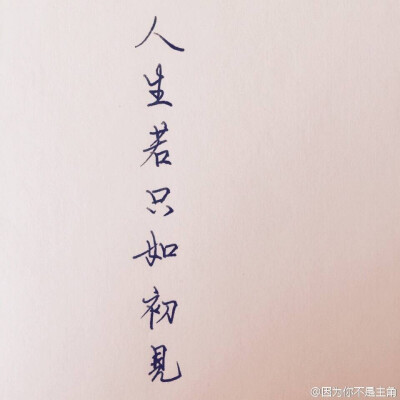 人生若只如初見
@因为你不是主角